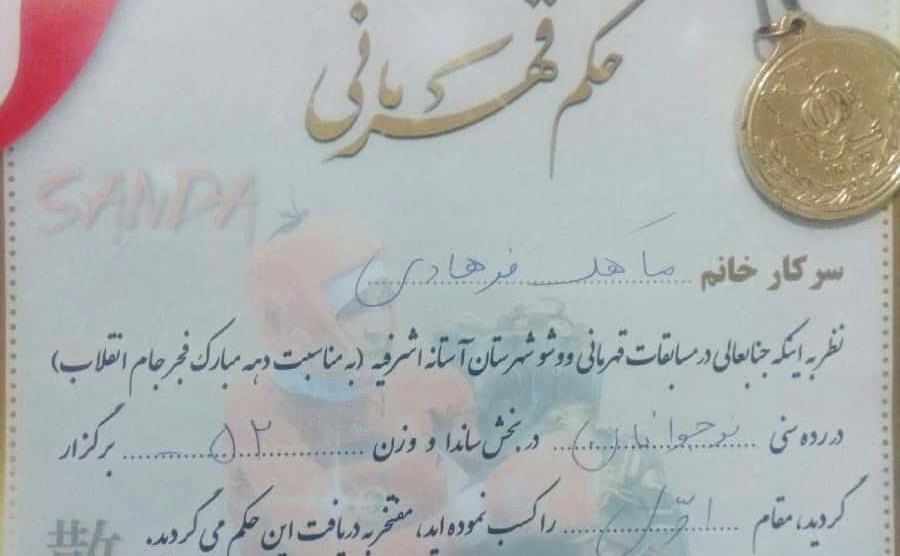 حکم قهرمانی
SANDA
سرکار خانم ماهک فرهادی
نظر به اینکه جنابعالی در مسابقات قهرمانی ووشو شهرستان آستانه اشرفیه (به مناسبت دهه مبارک فجر جام انقلاب)
در رده سنی نوجوانان در بخش ساندا و وزن ۵۲ برگزار
گردید، مقام اول را کسب نموده اید، مفتخر به دریافت این حکم می گردید.
散